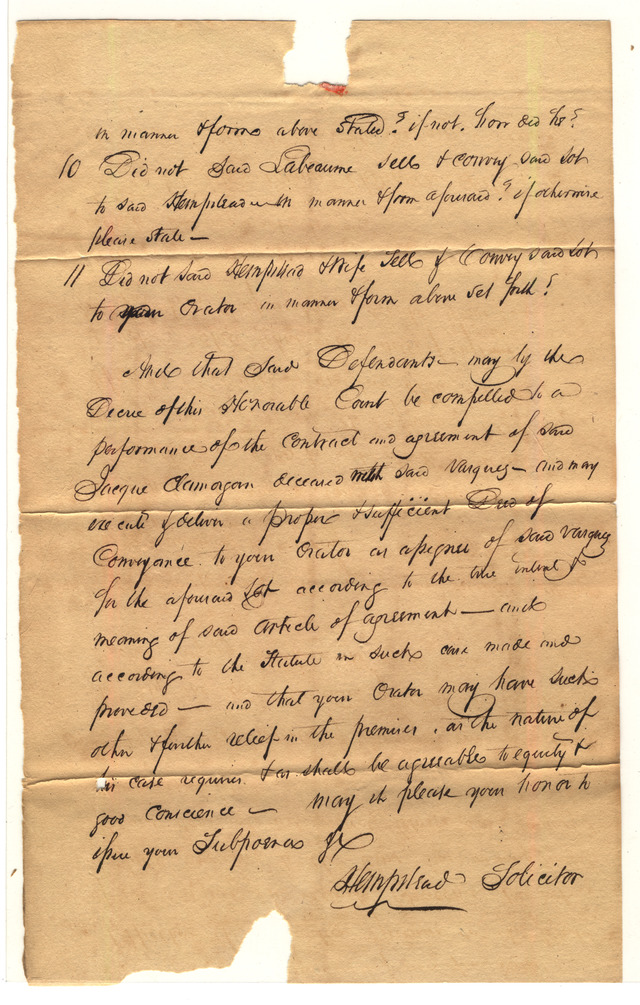 in manner & form above stated? if not, how did he?
10 Did not said Labeaume sell & convey said Lot
to said Hempstead in manner & form aforesaid? if otherwise
please state—
11 Did not said Hempstead & Wife Sell & Convey said Lot
to your Orator in manner & form above set forth?
And that said Defendants may by the
Decree of this Honorable Court be compelled to a
performance of the contract and agreement of said
Jacque Clamorgan deceased with said Vasquez— and may
execute & deliver a proper & sufficient Deed of
Conveyance to your Orator as assignee of said Vasquez
for the aforesaid Lot according to the true intent &
meaning of said Article of agreement— and
according to the Statute in such case made and
provided— and that your Orator may have such
other & further relief in the premises, as the nature of
his case requires & as shall be agreeable to equity &
good conscience— may it please your honor to
issue your Subpoenas &c
Hempstead Solicitor